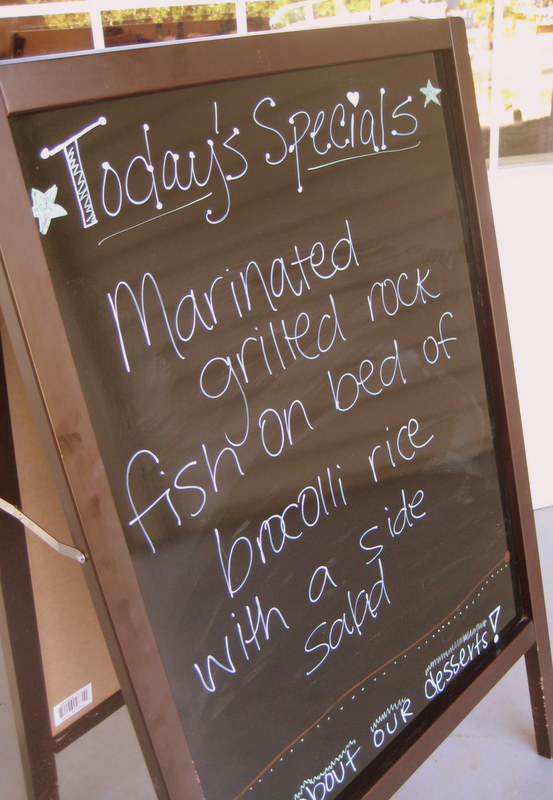 Today's Specials
Marinated
grilled rock
fish on bed of
brocolli rice
with a side
salad
about our desserts!